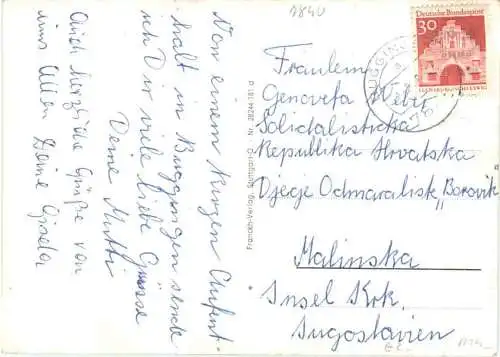 1840
Von einem kurzen Aufent-
halt in Buggingen sende
ich Dir viele liebe Grüsse
Deine Mutti
Auch herzliche Grüße von
uns Allen Deine Gisela
Franckh-Verlag, Stuttgart-O Nr. 28244 181 d
Deutsche Bundespost
30
FLENSBURG/SCHLESWIG
BUGGINGEN
Fräulein
Genovefa Weber
Solidalisticka
Republika Hrvatska
Djecje Odmaralisk „Borovik
Malinska
Insel Krk.
Jugoslavien